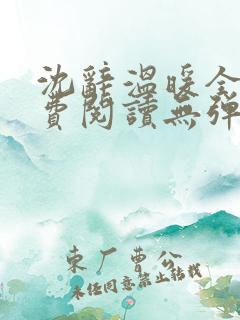 沈辭溫暖全
費閱讀無彈
東厂曹公
未经同意禁止转载